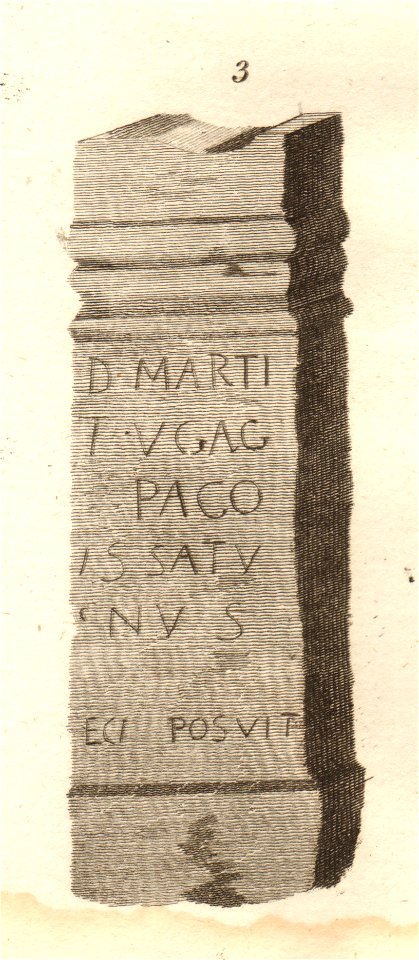 3
D · MARTI
T · VGAG
PACO
IS SATV
NVS
ECI POSVIT